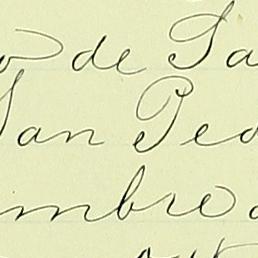 o de Sa
San Ped
mbre d